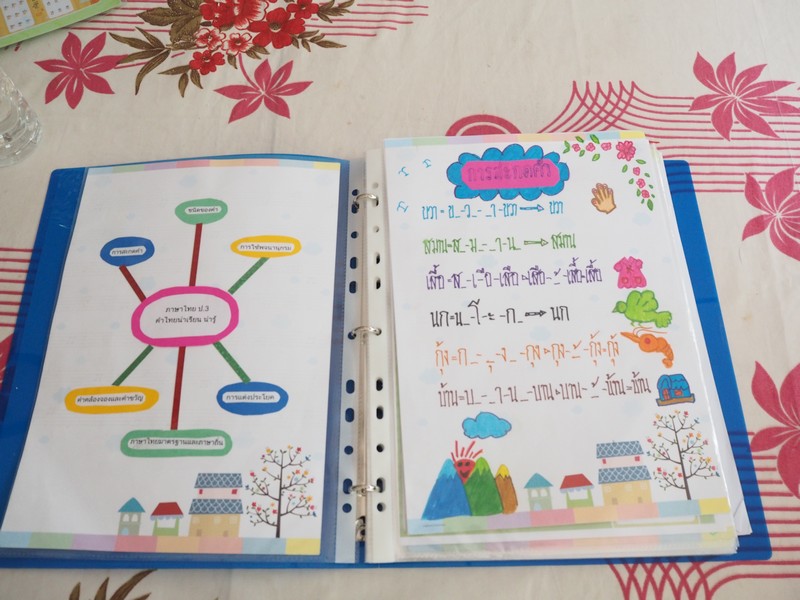 ชนิดของคำ
การสะกดคำ
การใช้พจนานุกรม
ภาษาไทย ป.3
คำไทยน่าเรียน น่ารู้
คำคล้องจองและคำขวัญ
การแต่งประโยค
ภาษาไทยมาตรฐานและภาษาถิ่น
การสะกดคำ
นก=น_-โ-ะ-ก_-นก
กุ้ง=ก_-_ุ-ง_-กุง-กุง-_้-กุ้ง=กุ้ง
บ้าน=บ_-_า-น_-บาน=บาน-_้-บ้าน=บ้าน